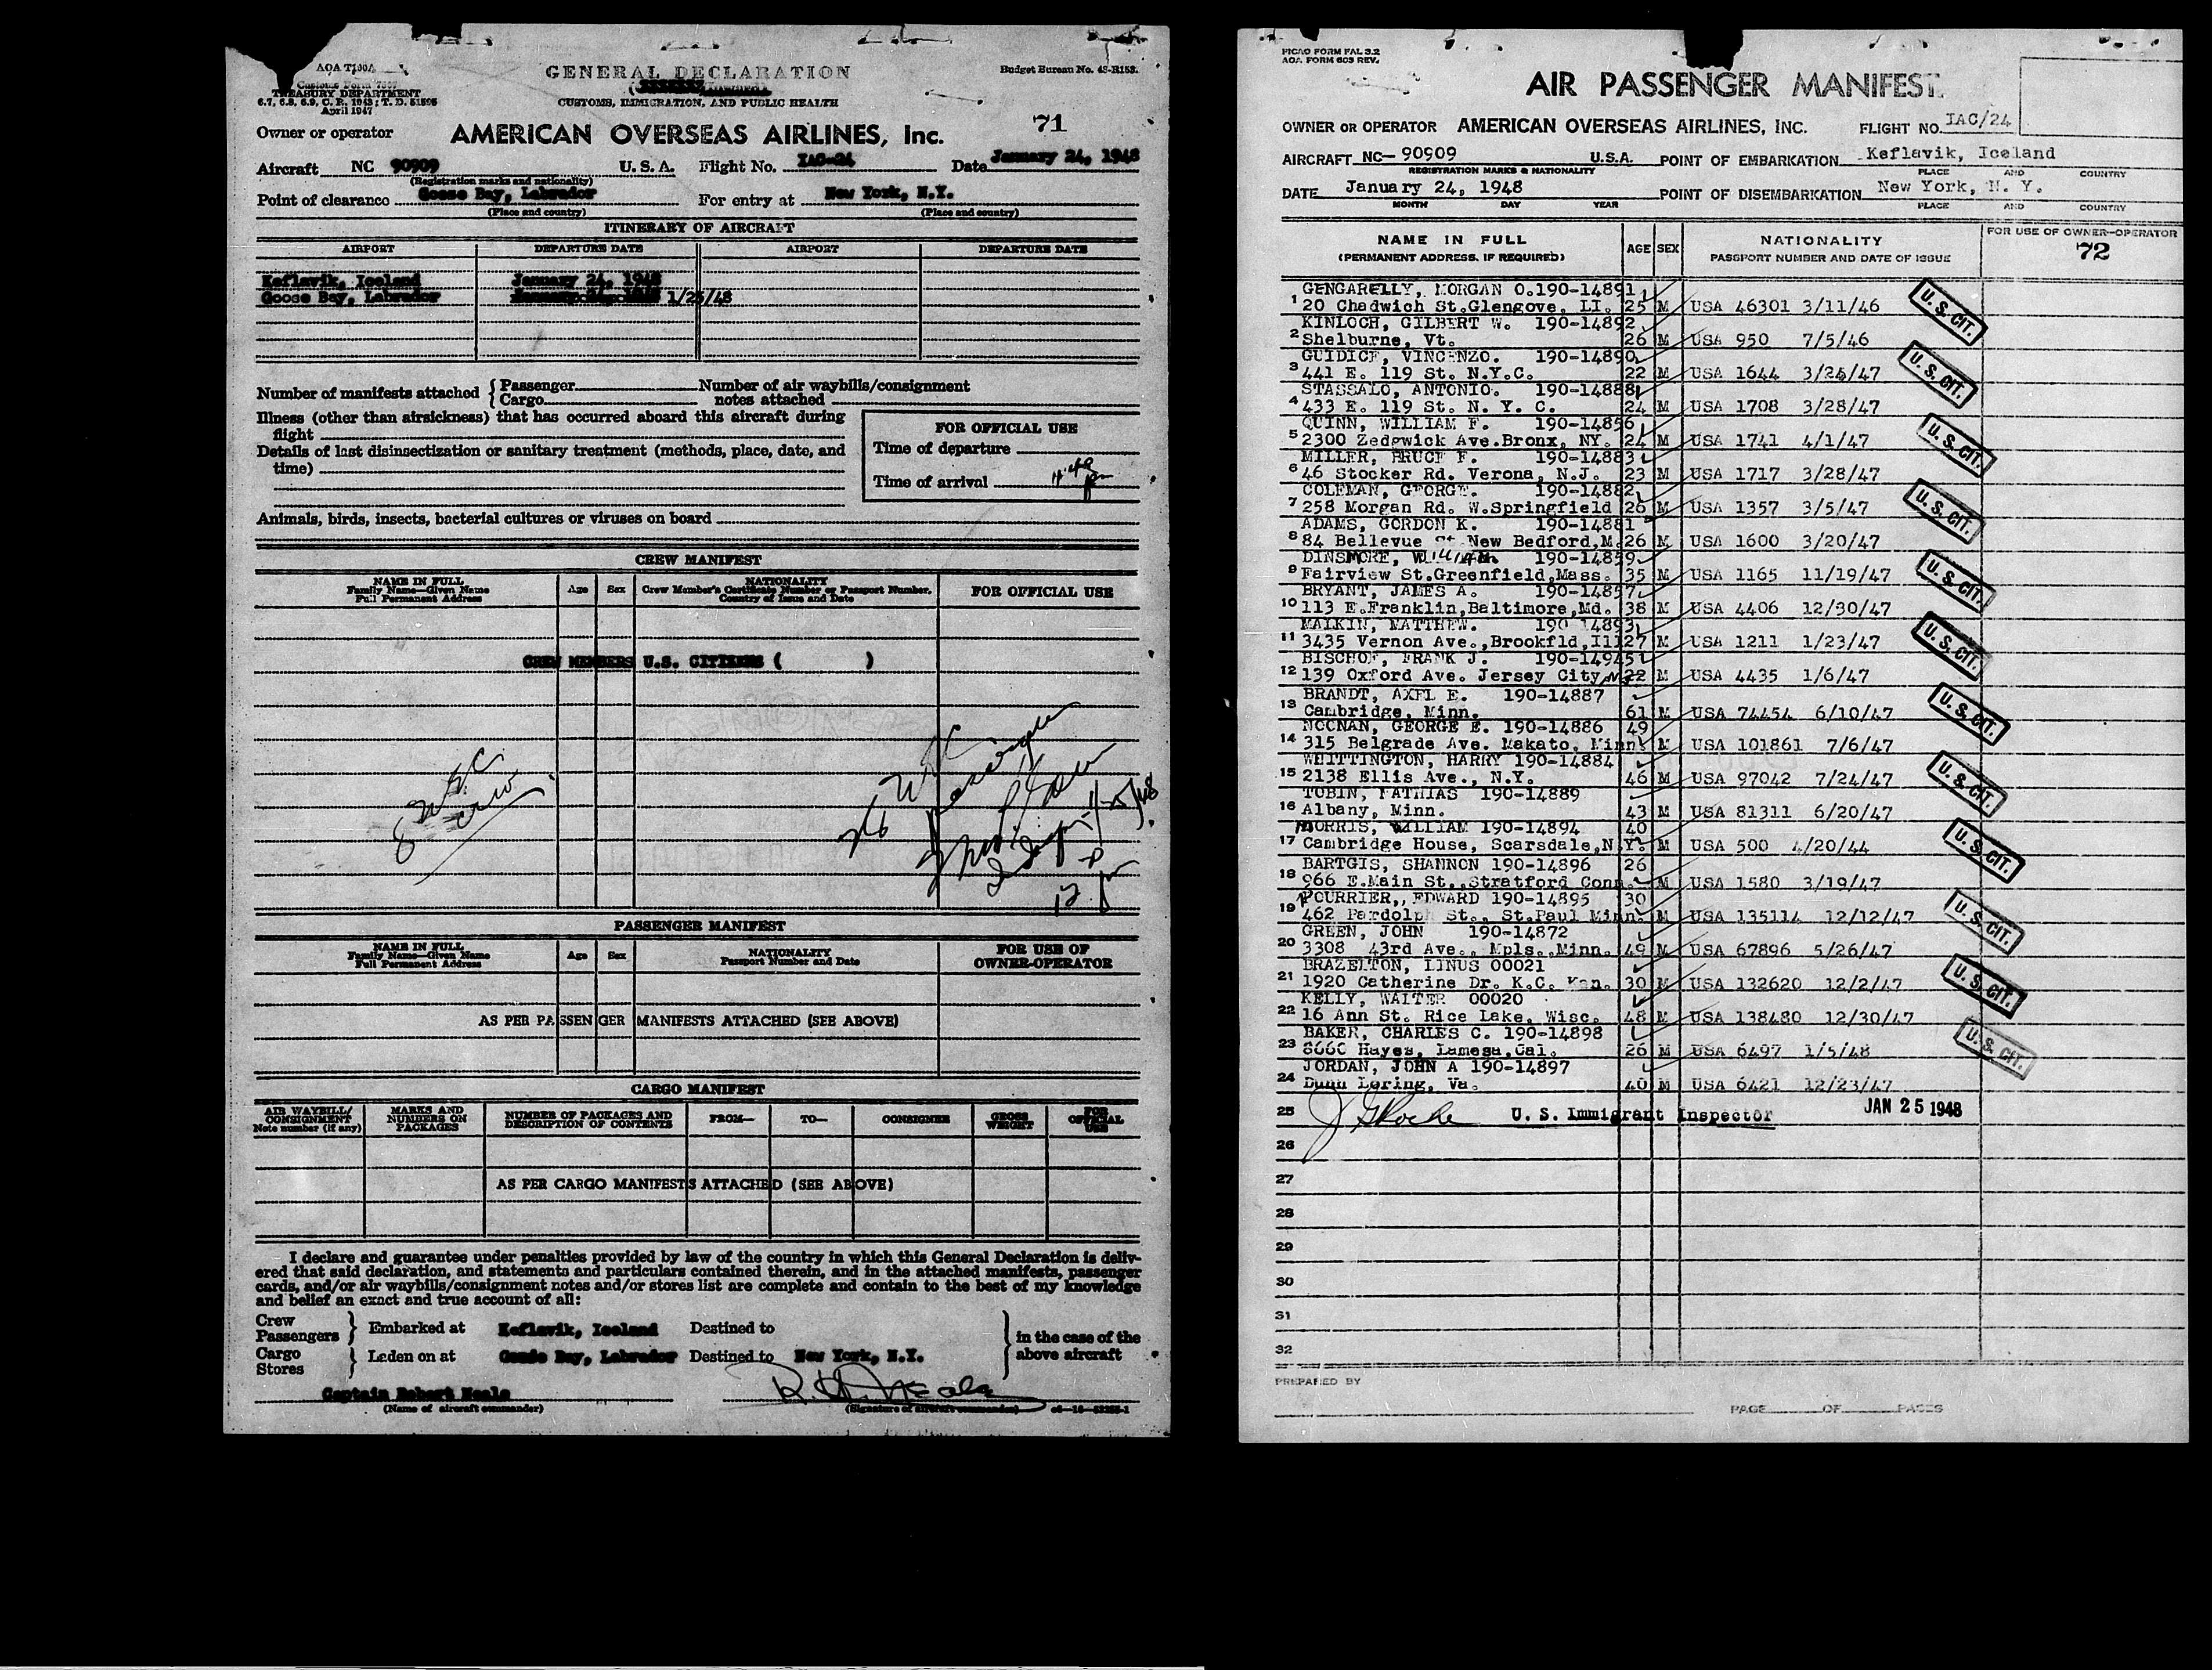 AOA T100A
Customs Form 7507
TREASURY DEPARTMENT
6.7, 6.8, 6.9, C. R. 1943; T. D. 51595
April 1947
GENERAL DECLARATION
CUSTOMS, IMMIGRATION, AND PUBLIC HEALTH
Budget Bureau No. 48-R153.
71
Owner or operator AMERICAN OVERSEAS AIRLINES, Inc.
Aircraft NC 90909 U. S. A. Flight No. IAC-24 Date January 24, 1948
(Registration marks and nationality)
Point of clearance Goose Bay, Labrador For entry at New York, N.Y.
(Place and country) (Place and country)
ITINERARY OF AIRCRAFT
AIRPORT DEPARTURE DATE AIRPORT DEPARTURE DATE
Keflavik, Iceland January 24, 1948
Goose Bay, Labrador January 24, 1948 1/25/48
Number of manifests attached { Passenger Number of air waybills/consignment
Cargo notes attached
Illness (other than airsickness) that has occurred aboard this aircraft during
flight
Details of last disinsectization or sanitary treatment (methods, place, date, and
time)
FOR OFFICIAL USE
Time of departure
Time of arrival
Animals, birds, insects, bacterial cultures or viruses on board
CREW MANIFEST
NAME IN FULL Age Sex NATIONALITY FOR OFFICIAL USE
Family Name—Given Name Crew Member's Certificate Number or Passport Number,
Full Permanent Address Country of Issue and Date
CREW MEMBERS U.S. CITIZENS ( )
PASSENGER MANIFEST
NAME IN FULL Age Sex NATIONALITY FOR USE OF
Family Name—Given Name Passport Number and Date OWNER-OPERATOR
Full Permanent Address
AS PER PASSENGER MANIFESTS ATTACHED (SEE ABOVE)
CARGO MANIFEST
AIR WAYBILL/ MARKS AND NUMBER OF PACKAGES AND FROM— TO— CONSIGNEE GROSS FOR
CONSIGNMENT NUMBERS ON DESCRIPTION OF CONTENTS WEIGHT OFFICIAL
Note number (if any) PACKAGES USE
AS PER CARGO MANIFESTS ATTACHED (SEE ABOVE)
I declare and guarantee under penalties provided by law of the country in which this General Declaration is deliv-
ered that said declaration, and statements and particulars contained therein, and in the attached manifests, passenger
cards, and/or air waybills/consignment notes and/or stores list are complete and contain to the best of my knowledge
and belief an exact and true account of all:
Crew
Passengers } Embarked at Keflavik, Iceland Destined to in the case of the
Cargo
Stores } Laden on at Goose Bay, Labrador Destined to New York, N.Y. above aircraft
Captain Robert Neale R. H. Neale
(Name of aircraft commander) (Signature of aircraft commander)
PICAO FORM FAL 3.2
AOA FORM 603 REV.
AIR PASSENGER MANIFEST
OWNER OR OPERATOR AMERICAN OVERSEAS AIRLINES, INC. FLIGHT NO. IAC/24
AIRCRAFT NC- 90909 U.S.A. POINT OF EMBARKATION Keflavik, Iceland
REGISTRATION MARKS & NATIONALITY PLACE AND COUNTRY
DATE January 24, 1948 POINT OF DISEMBARKATION New York, N. Y.
MONTH DAY YEAR PLACE AND COUNTRY
NAME IN FULL AGE SEX NATIONALITY FOR USE OF OWNER-OPERATOR
(PERMANENT ADDRESS, IF REQUIRED) PASSPORT NUMBER AND DATE OF ISSUE 72
GENGARELLY, MORGAN O. 190-14891
1 20 Chadwich St. Glengove, LI. 25 M USA 46301 3/11/46 U. S. CIT.
KINLOCH, GILBERT W. 190-14892
2 Shelburne, Vt. 26 M USA 950 7/5/46
GUIDICE, VINCENZO. 190-14890
3 441 E. 119 St. N.Y.C. 22 M USA 1644 3/24/47 U. S. CIT.
STASSALO, ANTONIO. 190-14888
4 433 E. 119 St. N. Y. C. 24 M USA 1708 3/28/47
QUINN, WILLIAM F. 190-14856
5 2300 Zedgwick Ave. Bronx, NY. 24 M USA 1741 4/1/47 U. S. CIT.
MILLER, BRUCE F. 190-14883
6 46 Stocker Rd. Verona, N.J. 23 M USA 1717 3/28/47
COLEMAN, GEORGE. 190-14882
7 258 Morgan Rd. W.Springfield 26 M USA 1357 3/5/47 U. S. CIT.
ADAMS, GORDON K. 190-14881
8 84 Bellevue St New Bedford,M. 26 M USA 1600 3/20/47
DINSMORE, William 190-14859
9 Fairview St.Greenfield,Mass. 35 M USA 1165 11/19/47 U. S. CIT.
BRYANT, JAMES A. 190-14857
10 113 E.Franklin,Baltimore,Md. 38 M USA 4406 12/30/47
MALKIN, MATTHEW. 190 14893
11 3435 Vernon Ave.,Brookfld,Ill 27 M USA 1211 1/23/47 U. S. CIT.
BISCHOF, FRANK J. 190-14945
12 139 Oxford Ave. Jersey City NJ 22 M USA 4435 1/6/47
BRANDT, AXEL E. 190-14887
13 Cambridge, Minn. 61 M USA 74454 6/10/47 U. S. CIT.
NOONAN, GEORGE E. 190-14886 49
14 315 Belgrade Ave. Makato, Minn M USA 101861 7/6/47
WHITTINGTON, HARRY 190-14884
15 2138 Ellis Ave., N.Y. 46 M USA 97042 7/24/47 U. S. CIT.
TOBIN, MATHIAS 190-14889
16 Albany, Minn. 43 M USA 81311 6/20/47
MORRIS, WILLIAM 190-14894 40
17 Cambridge House, Scarsdale,N.Y. M USA 500 4/20/44 U. S. CIT.
BARTGIS, SHANNON 190-14896 26
18 966 E.Main St.,Stratford Conn. M USA 1580 3/19/47
POURRIER,, EDWARD 190-14895 30
19 462 Pardolph St., St.Paul Minn. M USA 135114 12/12/47 U. S. CIT.
GREEN, JOHN 190-14872
20 3308 43rd Ave., Mpls.,Minn. 49 M USA 67896 5/26/47
BRAZELTON, LINUS 00021
21 1920 Catherine Dr. K.C. Kan. 30 M USA 132620 12/2/47 U. S. CIT.
KELLY, WALTER 00020
22 16 Ann St. Rice Lake, Wisc. 48 M USA 138480 12/30/47
BAKER, CHARLES C. 190-14898
23 8660 Hayes, Lamesa,Cal. 26 M USA 6497 1/5/48 U. S. CIT.
JORDAN, JOHN A 190-14897
24 Dunn Loring, Va. 40 M USA 6421 12/23/47
25 U. S. Immigrant Inspector JAN 25 1948
26
27
28
29
30
31
32
PREPARED BY
PAGE OF PAGES